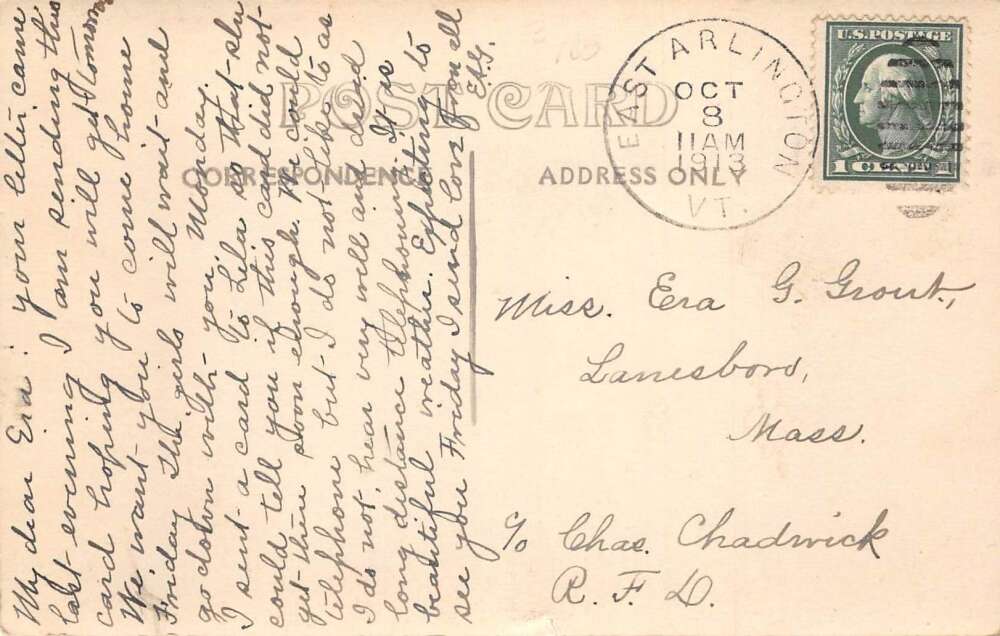 POST CARD
CORRESPONDENCE
ADDRESS ONLY
EAST ARLINGTON
OCT
8
11AM
1913
VT.
U.S. POSTAGE
1 CENT 1
My dear Era: your letter came
last evening I am sending this
card hoping you will get tomorrow
We want you to come home
Friday the girls will wait and
go down with you, Monday.
I sent a card to Lila so that she
could tell you if this card did not
get there soon enough. We could
telephone but I do not like to as
I do not hear very well and dread
long distance telephoning. It is
beautiful weather. Expecting to
see you Friday I send love from all
Miss. Era G. Grout,
Lanesboro,
Mass.
c/o Chas. Chadwick
R. F. D.